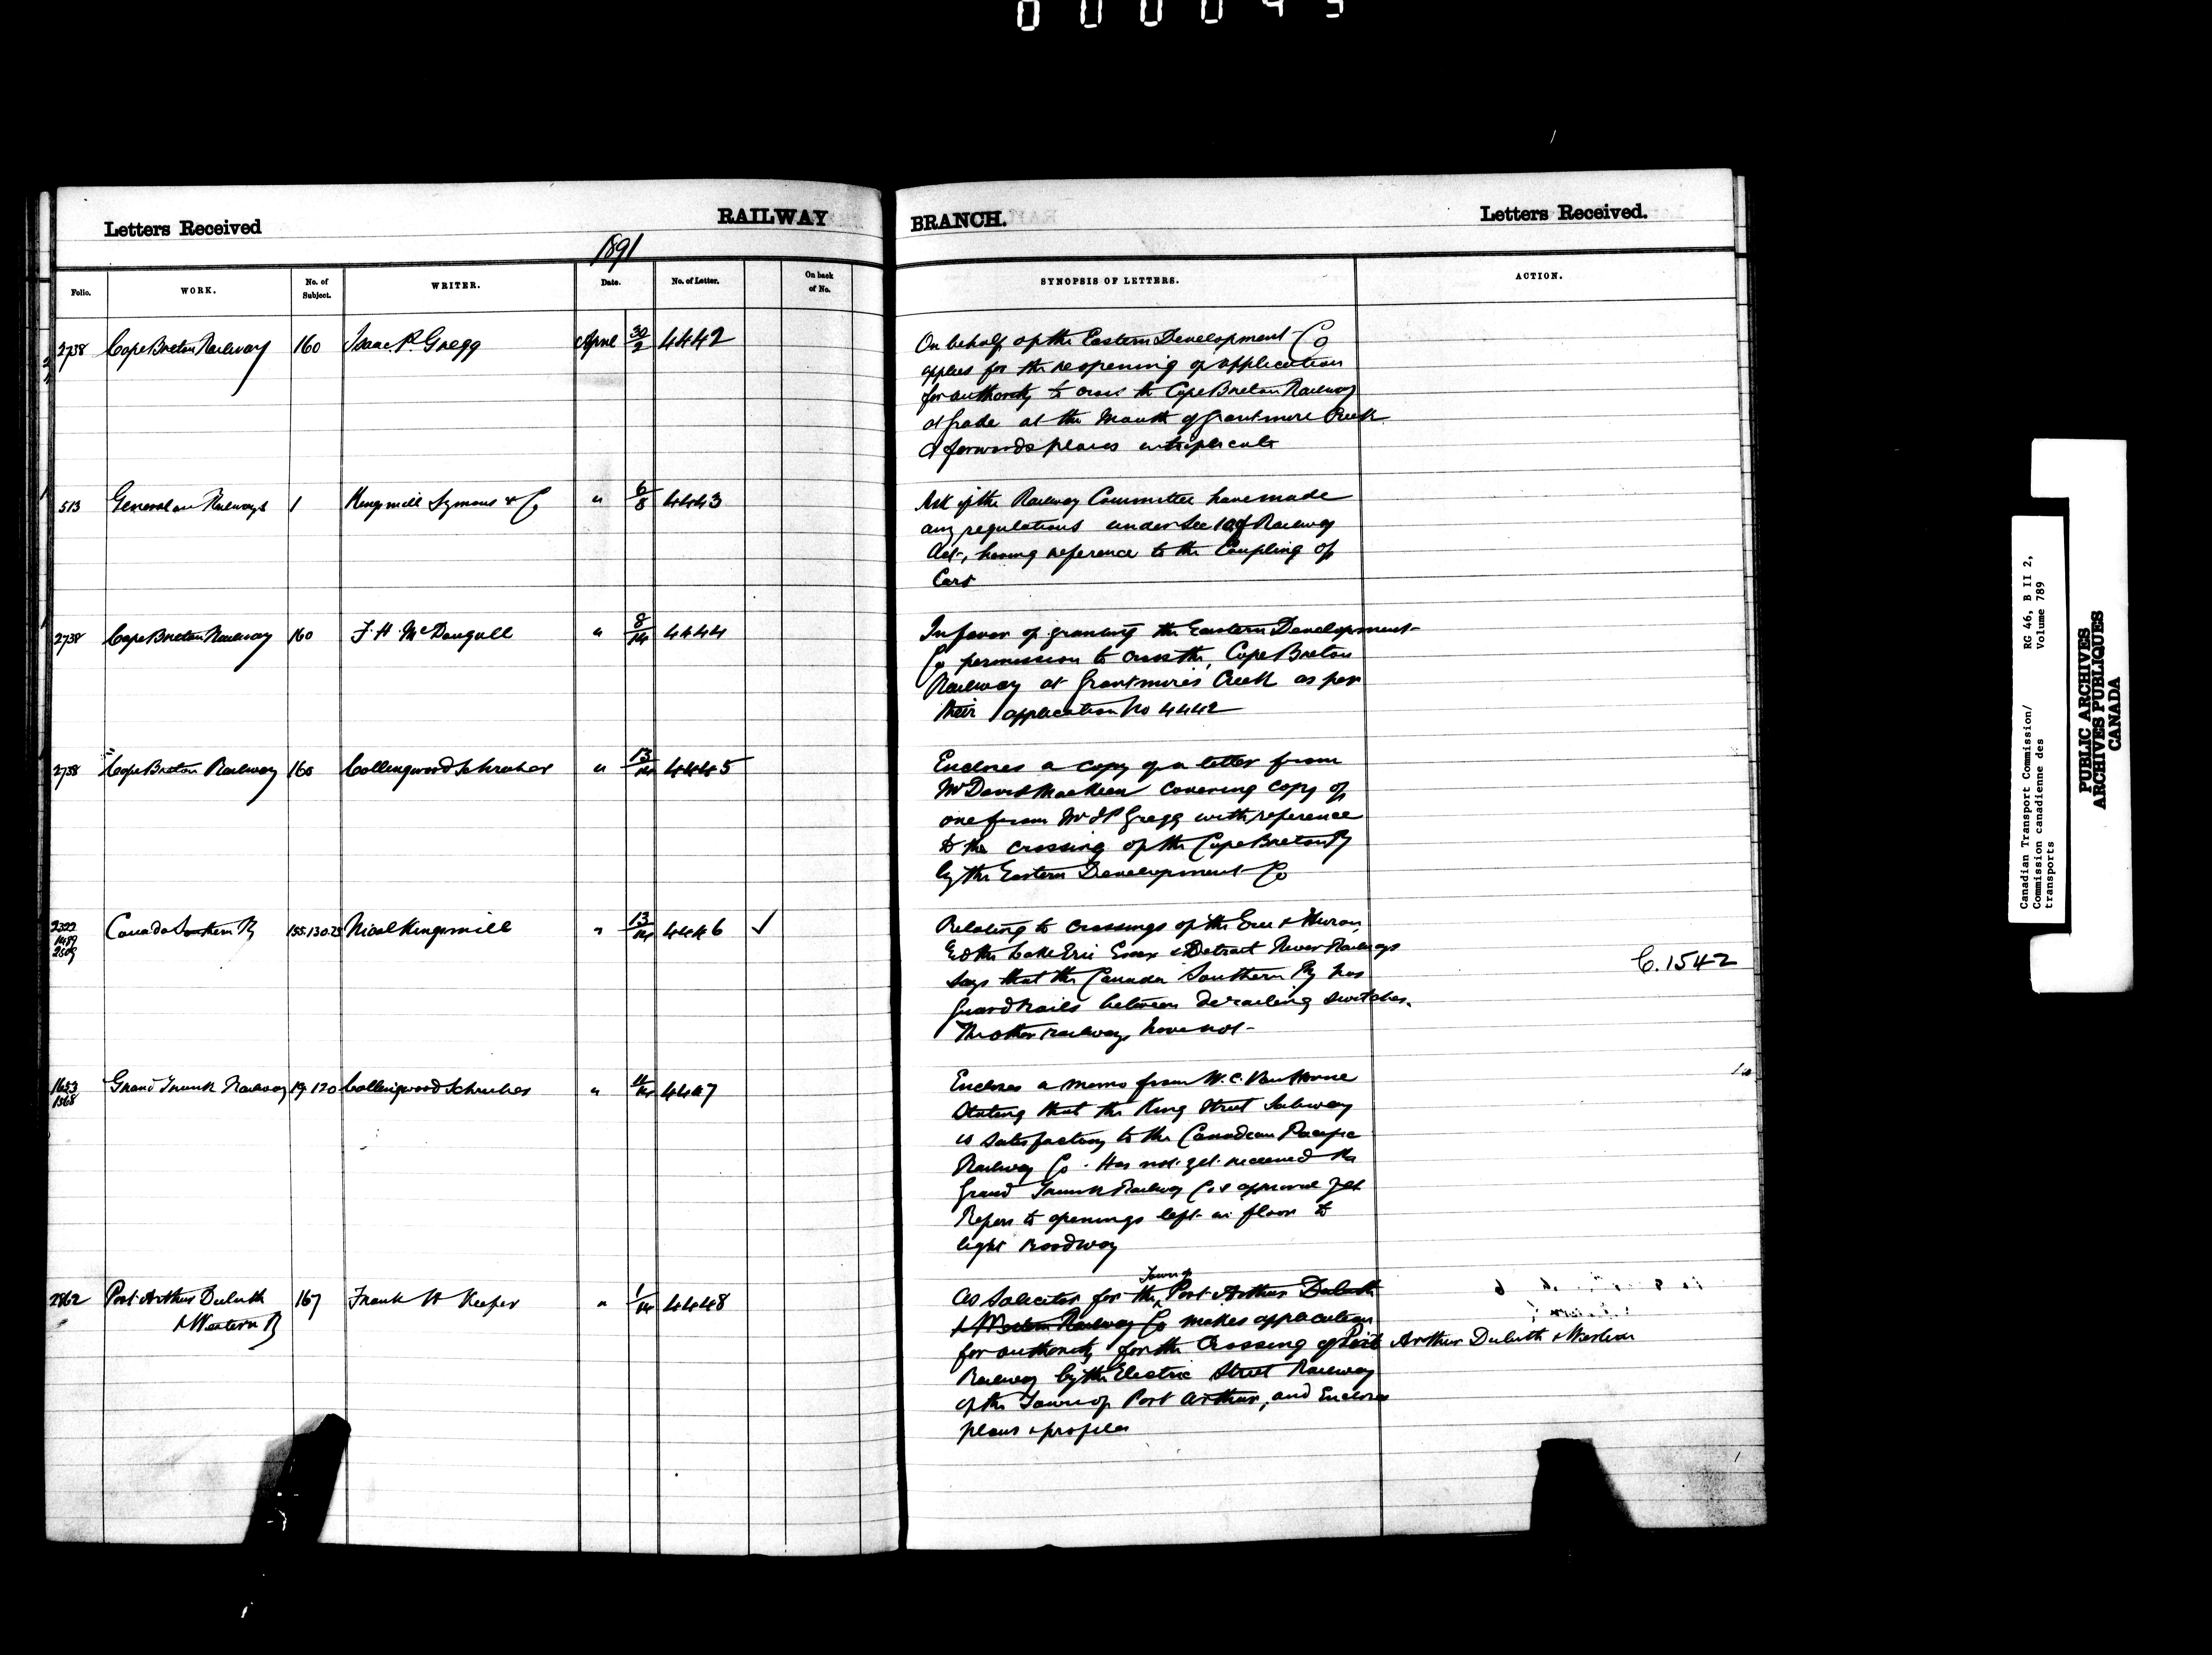 000043
Letters Received
RAILWAY
BRANCH.
Letters Received.
1891
Folio.
WORK.
No. of Subject.
WRITER.
Date.
No. of Letter.
On back of No.
SYNOPSIS OF LETTERS.
ACTION.
2738 Cape Breton Railway 160 Isaac P. Gregg April 30/2 4442
On behalf of the Eastern Development Co
applies for the reopening of application
for authority to cross the Cape Breton Railway
at grade at the Mouth of Grantmire Creek
& forwards plans in triplicate
513 General on Railways 1 Kingsmill Symons & Co " 6/8 4443
Ask if the Railway Committee have made
any regulations under Sec 10 of Railway
Act, having reference to the Coupling of
Cars
2738 Cape Breton Railway 160 F. H. McDougall " 8/14 4444
In favor of granting the Eastern Development
Co permission to cross the Cape Breton
Railway at Grantmires Creek as per
their application No 4442
2738 Cape Breton Railway 160 Collingwood Schreiber " 13/14 4445
Encloses a copy of a letter from
Mr David MacKeen covering copy of
one from Mr I P Gregg with reference
to the crossing of the Cape Breton Ry
by the Eastern Development Co
2322 1489 2509 Canada Southern Ry 155.130.25 Nicol Kingsmill " 13/14 4446 ✓
Relating to crossings of the Erie & Huron
& the Lake Erie Essex & Detroit River Railways
says that the Canada Southern Ry has
Guard rails between derailing switches.
The other railways have not
C. 1542
1653 1368 Grand Trunk Railway 19.120 Collingwood Schreiber " 11/14 4447
Encloses a memo from W. C. Van Horne
Stating that the King Street Subway
is satisfactory to the Canadian Pacific
Railway Co. Has not yet received the
Grand Trunk Railway Co's approval yet
Refers to openings left in floor to
light roadway
2862 Port Arthur Duluth 167 Frank H Keefer " 1/14 4448
& Western Ry
Town of
As Solicitor for the Port Arthur Duluth
& Western Railway Co makes application
for authority for the Crossing of Port Arthur Duluth & Western
Railway by the Electric Street Railway
of the Town of Port Arthur, and Encloses
plans & profiles
Canadian Transport Commission/ RG 46, B II 2,
Commission canadienne des Volume 789
transports
PUBLIC ARCHIVES
ARCHIVES PUBLIQUES
CANADA